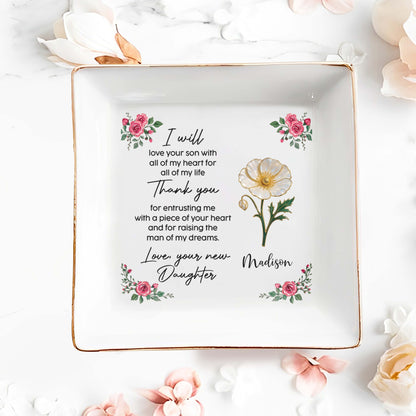 I will
love your son with
all of my heart for
all of my life
Thank you
for entrusting me
with a piece of your heart
and for raising the
man of my dreams.
Love your new
Daughter
Madison